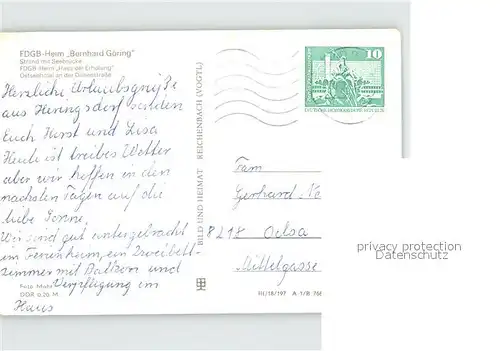 FDGB-Heim „Bernhard Göring"
Strand mit Seebrücke
FDGB-Heim „Haus der Erholung"
Ostseehotel an der Dünenstraße
Herzliche Urlaubsgrüße
aus Heringsdorf senden
Euch Horst und Lisa
Heute ist trübes Wetter
aber wir hoffen in den
nächsten Tagen auf die
liebe Sonne.
Wir sind gut untergebracht
im Ferienheim, ein Zweibett-
zimmer mit Balkon und
Verpflegung im
Haus
Foto:
DDR 0,20 M
BILD UND HEIMAT REICHENBACH (VOGTL)
III/18/197 A 1/B
10
DEUTSCHE DEMOKRATISCHE REPUBLIK
Fam
Gerhard
8218 Oelsa
Mittelgasse
privacy protection
Datenschutz